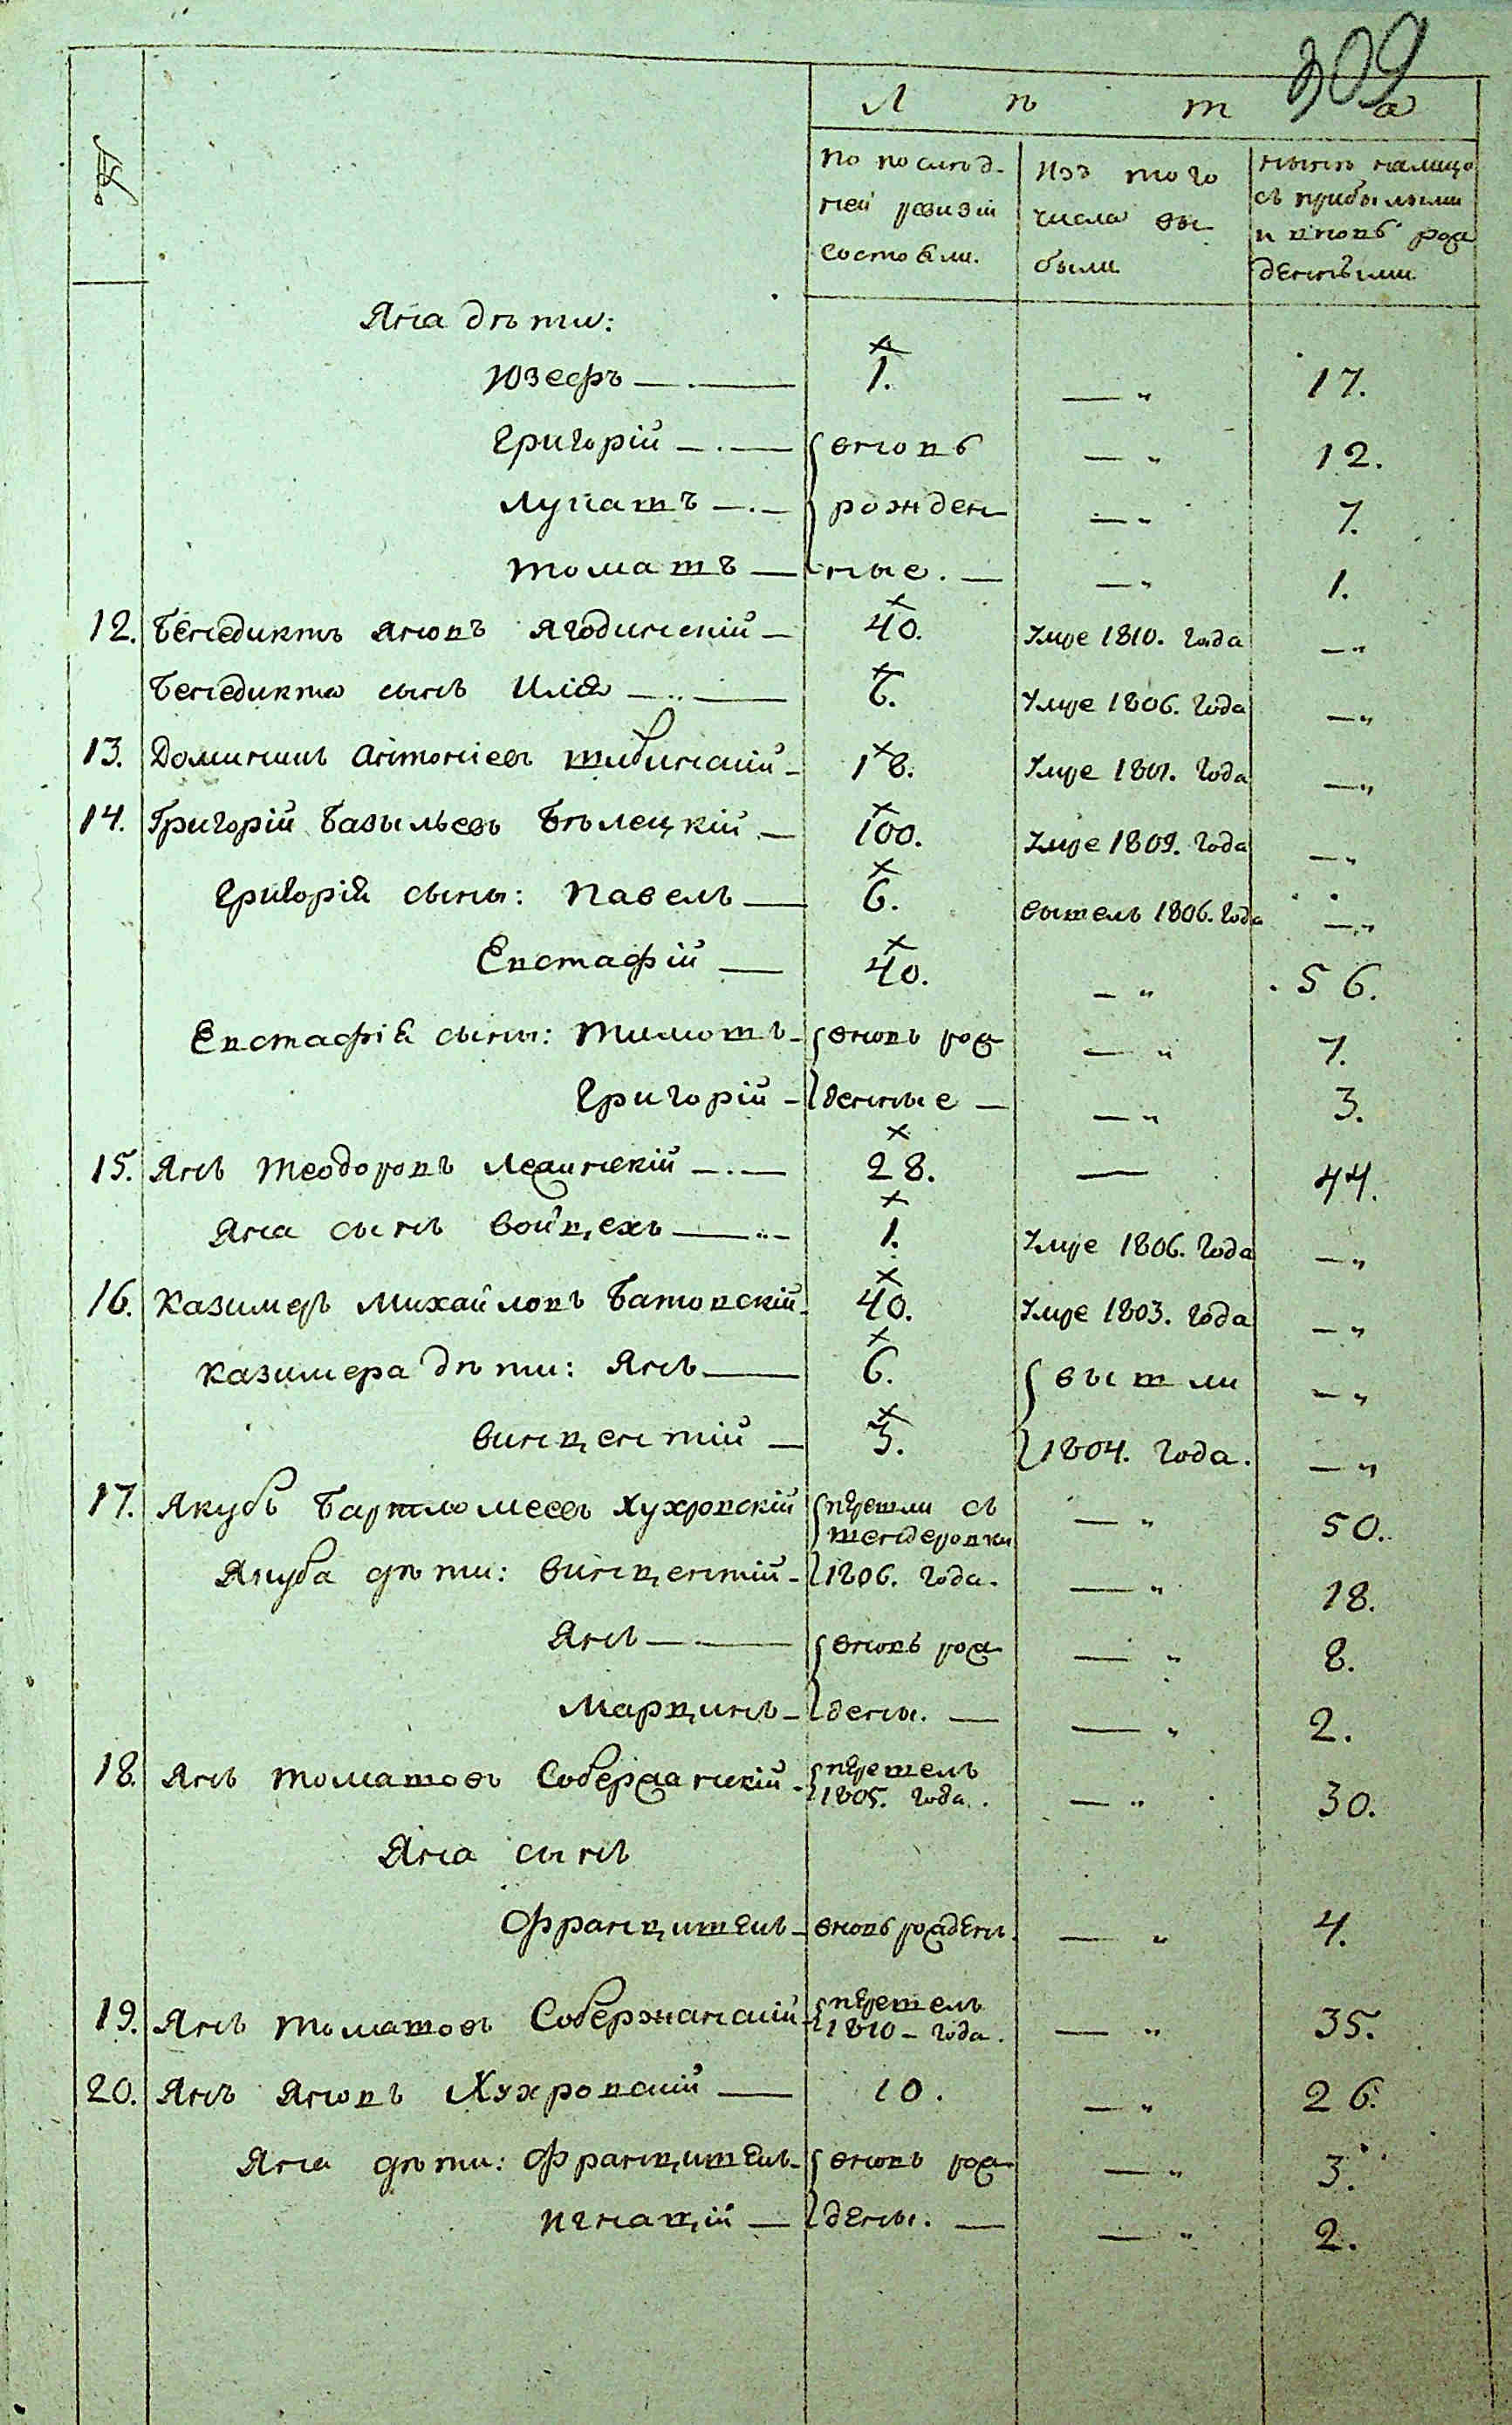 309
№
Лѣта
по послѣд-
ней ревизіи
состояли.
Изъ того
числа вы
были
нынѣ налицо
съ прибылыми
и вновь рож
денными
Яна дѣти:
Юзефъ — 1. — " 17.
Григорій — вновь — " 12.
Лукашъ — рожден — " 7.
Томашъ — ные. — — " 1.
12. Бенедиктъ Яновъ Ягодинскій — 40. Умре 1810. года — "
Бенедикта сынъ Илія — 6. Умре 1806. года — "
13. Доминикъ Антоніевъ Шибинскій — 18. Умре 1801. года — "
14. Григорій Базыльевъ Бѣлецкій — 100. Умре 1809. года — "
Григорія сыны: Павелъ — 6. вышелъ 1806. года — "
Евстафій — 40. — " 56.
Евстафія сыны: Тимошъ — вновь рож — " 7.
Григорій — денные — — " 3.
15. Янъ Теодоровъ Лещинскій — 28. — 44.
Яна сынъ Войцехъ — 1. Умре 1806. года — "
16. Казимеръ Михайловъ Батовскій 40. Умре 1803. года — "
Казимера дѣти: Янъ — 6. вышли — "
Винцентій — 3. 1804. года. — "
17. Якубъ Бартломеевъ Хухровскій перешли съ — " 50.
Тендеровки
Якуба дѣти: Винцентій — 1806. года. — " 18.
Янъ — вновь рож — " 8.
Марцинъ — дены. — — " 2.
18. Янъ Томашовъ Собержанскій — перешелъ
1805. года. — " 30.
Яна сынъ
Францишекъ — вновь рожденъ. — " 4.
19. Янъ Томашовъ Собержанскій перешелъ
1810 — года. — " 35.
20. Янъ Яновъ Хухровскій — 10. — " 26.
Яна дѣти: Францишекъ — вновь рож — " 3.
Игнацій — дены. — — " 2.